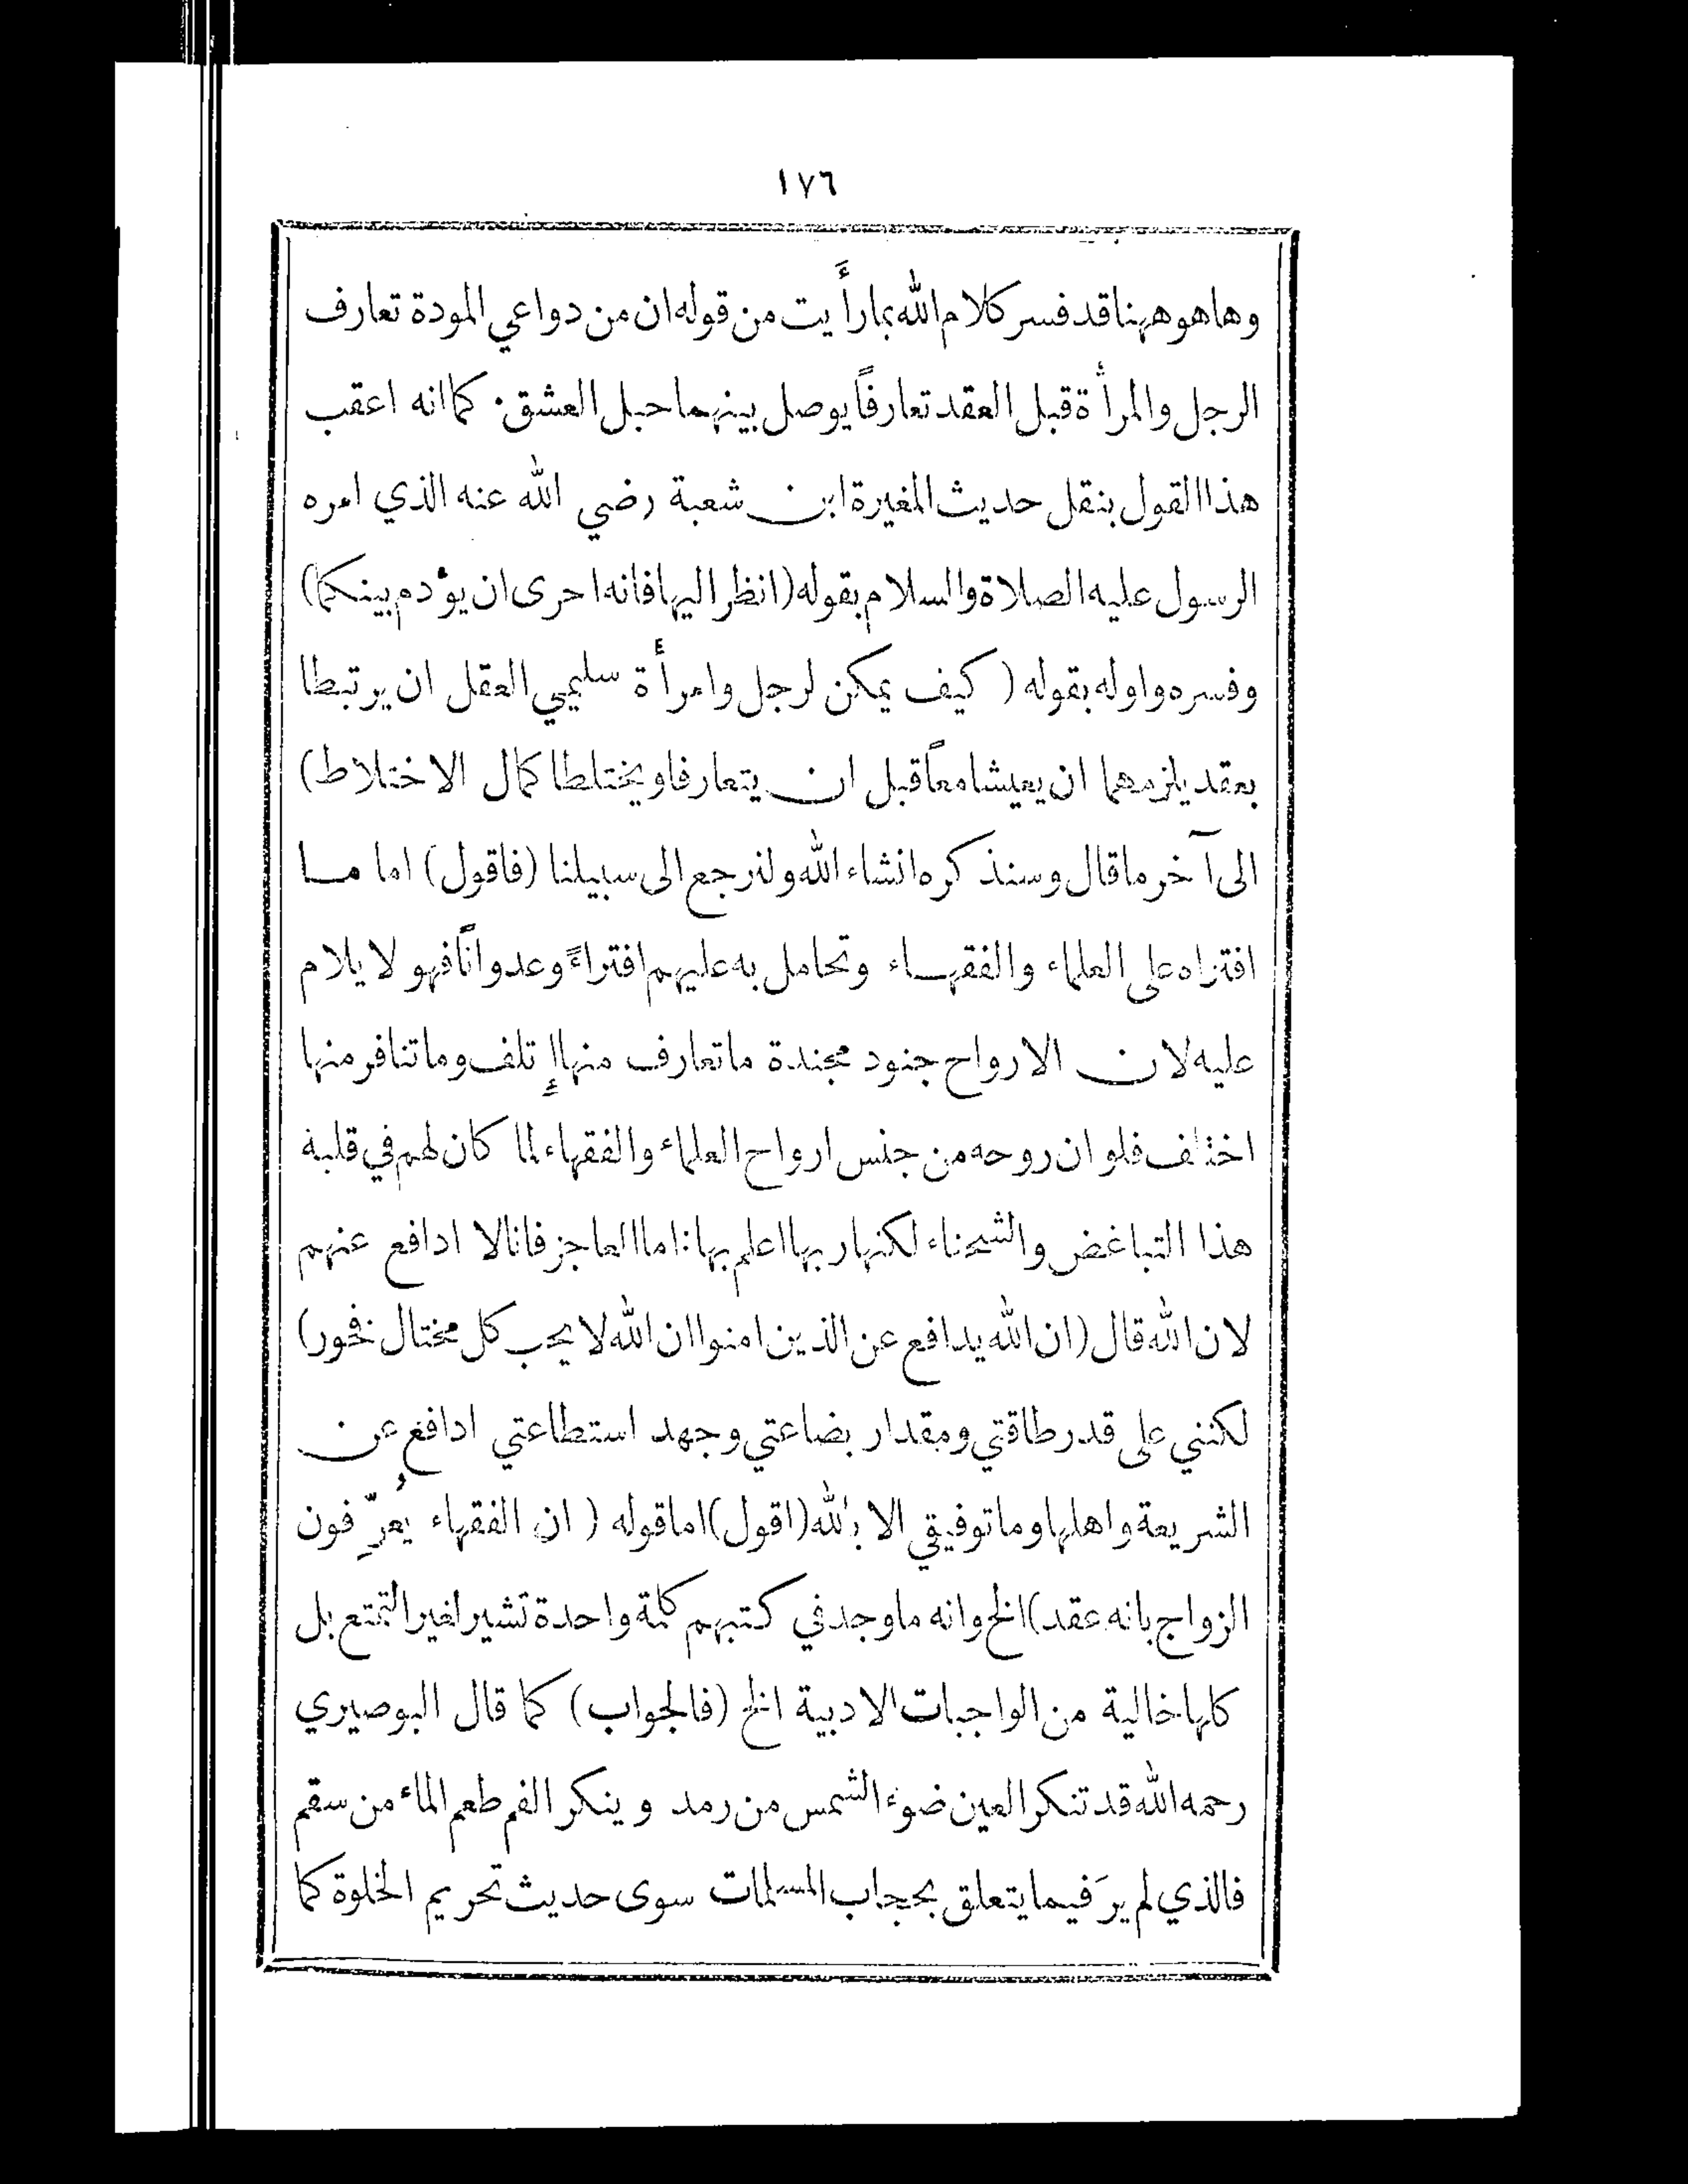 ١٧٦
وها هو ههنا قد فسر كلام الله بما رأَيت من قوله ان من دواعي المودة تعارف
الرجل والمرأة قبل العقد تعارفاً يوصل بينهما حبل العشق. كما انه اعقب
هذا القول بنقل حديث المغيرة ابن شعبة رضي الله عنه الذي امره
الرسول عليه الصلاة والسلام بقوله (انظر اليها فانه احرى ان يؤدم بينكما)
وفسره واوله بقوله ( كيف يمكن لرجل وامرأة سليمي العقل ان يرتبطا
بعقد يلزمهما ان يعيشا معاً قبل ان يتعارفا ويختلطا كمال الاختلاط)
الى آخر ما قال وسنذكره انشاء الله ولنرجع الى سبيلنا (فاقول) اما ما
افتراه على العلماء والفقهاء وتحامل به عليهم افتراءً وعدواناً فهو لا يلام
عليه لان الارواح جنود مجندة ما تعارف منها إئتلف وما تنافر منها
اختلف فلو ان روحه من جنس ارواح العلماء والفقهاء لما كان لهم في قلبة
هذا التباغض والشحناء لكنها ربها اعلم بها: اما العاجز فانا لا ادافع عنهم
لان الله قال (ان الله يدافع عن الذين امنوا ان الله لا يحب كل مختال فخور)
لكنني على قدر طاقتي ومقدار بضاعتي وجهد استطاعتي ادافع عن
الشريعة واهلها وما توفيقي الا بالله (اقول) اما قوله ( ان الفقهاء يُعرِّفون
الزواج بانه عقد) الخ وانه ما وجد في كتبهم كلمة واحدة تشير لغير التمتع بل
كلها خالية من الواجبات الادبية الخ (فالجواب) كما قال البوصيري
رحمه الله قد تنكر العين ضوء الشمس من رمد وينكر الفم طعم الماء من سقم
فالذي لم يرَ فيما يتعلق بحجاب المسلمات سوى حديث تحريم الخلوة كما